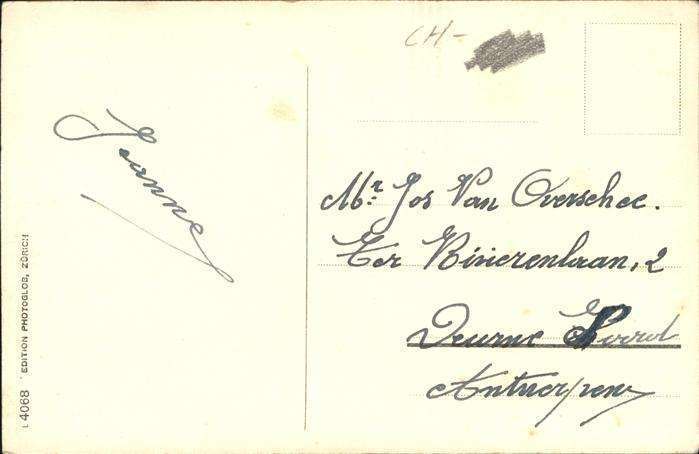 CH-
Jeanne
Mr: Jos Van Overschee.
Ter Rivierenlaan, 2
Deurne
Antwerpen
L 4068 EDITION PHOTOGLOB, ZÜRICH